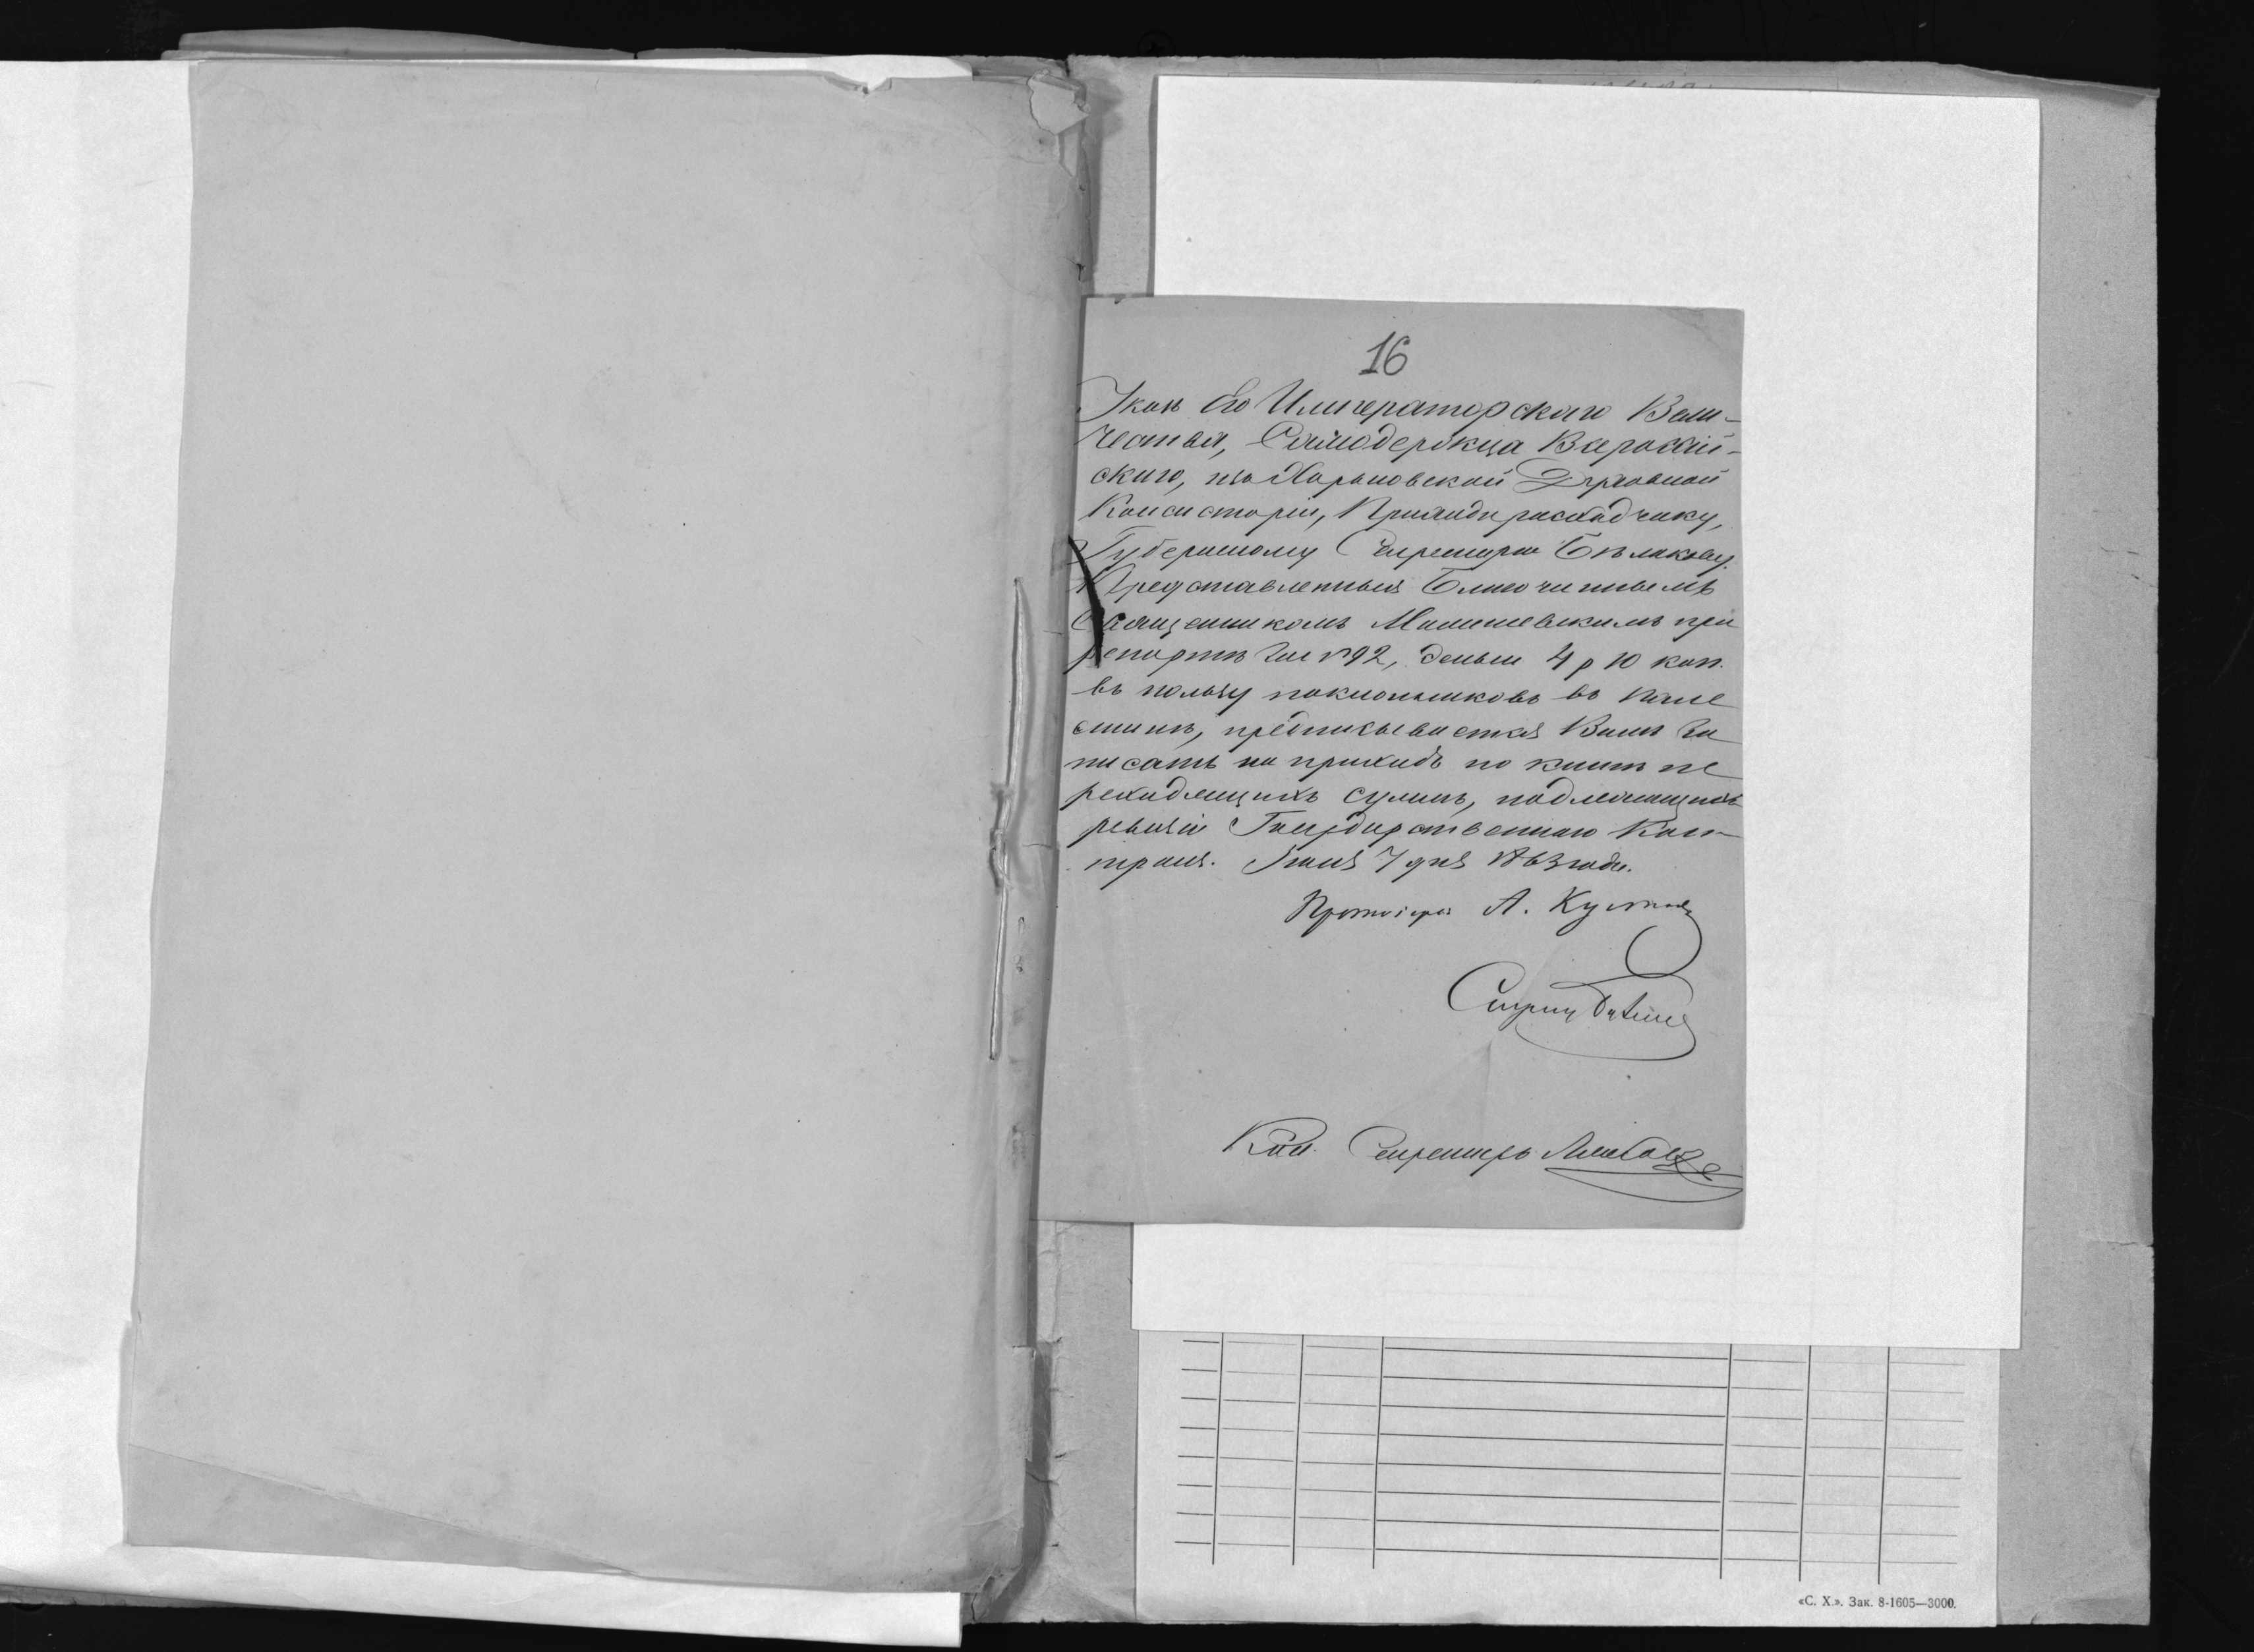 16
Указъ Его Императорскаго Вели-
чества, Самодержца Всероссій-
скаго, изъ Харьковской Духовной
Консисторіи, Приходорасходчику,
Губернскому Секретарю Бѣлякову.
Представленныя Благочиннымъ
Священникомъ при
репортѣ за №92, деньги 4 р 10 коп.
въ пользу поклонниковъ въ Пале
стинѣ, предписывается Вамъ за
писать на приходъ по книгѣ пе
реходящихъ суммъ, подлежащихъ
ревизіи Государственнаго Кон-
троля. 7 дня 1863 года.
Протоіерей А.
Секретарь
«С. Х.». Зак. 8-1605—3000.